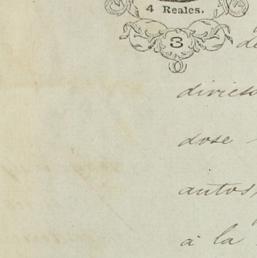 4 Reales.
3
de
dose
autos,
à la